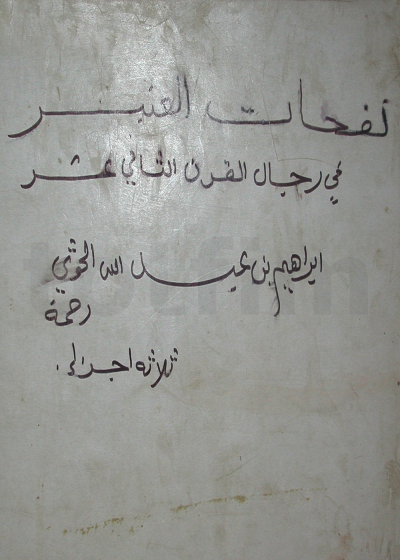 نفحات العنبر
في رجال القرن الثاني عشر
ابراهيم بن عبد الله الحوثي
رحمة
ثلاثه اجزاء.